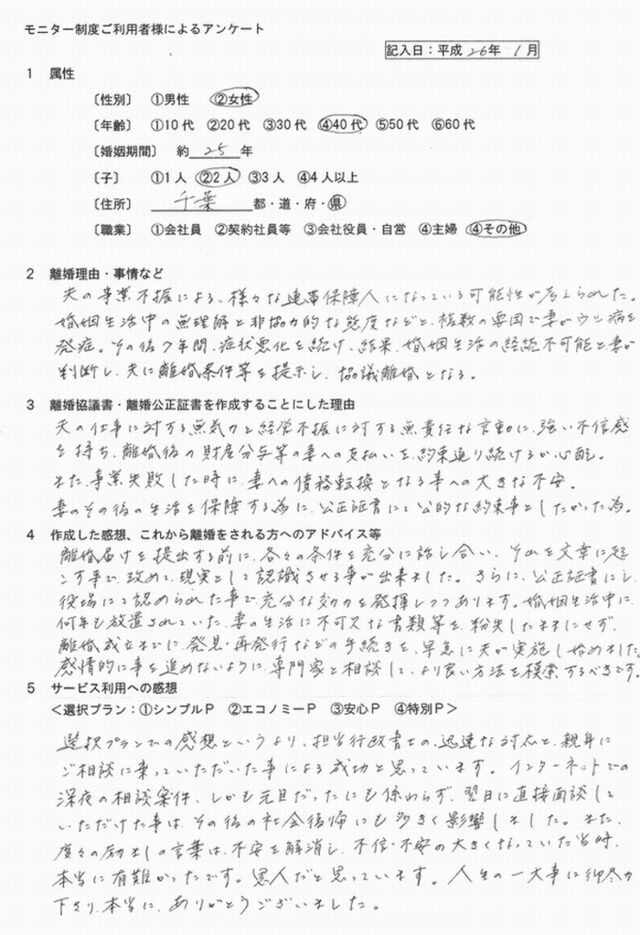 モニター制度ご利用者様によるアンケート
記入日：平成 26年 1月
1 属性
〔性別〕 ①男性 ②女性
〔年齢〕 ①10代 ②20代 ③30代 ④40代 ⑤50代 ⑥60代
〔婚姻期間〕 約 25 年
〔子〕 ①1人 ②2人 ③3人 ④4人以上
〔住所〕 千葉 都・道・府・県
〔職業〕 ①会社員 ②契約社員等 ③会社役員・自営 ④主婦 ④その他
2 離婚理由・事情など
夫の事業不振による、様々な連帯保障人になっている可能性が考えられた。
婚姻生活中の無理解と非協力的な態度などと、複数の要因で妻がウツ病を
発症。その後7年間、症状悪化を続け、結果、婚姻生活の経続不可能と妻が
判断し、夫に離婚条件等を提示し、協議離婚となる。
3 離婚協議書・離婚公正証書を作成することにした理由
夫の仕事に対する無気力と経営不振に対する無責任な言動に、強い不信感
を持ち、離婚後の財産分与等の妻への支払いを、約束通り続けるか心配。
また、事業失敗した時に、妻への債務転換となる事への大きな不安。
妻のその後の生活を保障する為に、公正証書にて公的な約束事としたかった為。
4 作成した感想、これから離婚をされる方へのアドバイス等
離婚届けを提出する前に、各々の条件を充分に話し合い、それを文章に起
こす事で、改めて、現実として認識させる事が出来ました。さらに、公正証書にし、
役場にて認められた事で、充分な効力を発揮しつつあります。婚姻生活中に、
何年も放置されていた、妻の生活に不可欠な書類等を、紛失したままにせず、
離婚成立までに、発見・再発行などの手続きを、早急に夫が実施し始めました。
感情的に事を進めないように、専門家と相談して、より良い方法を模索するべきです。
5 サービス利用への感想
＜選択プラン：①シンプルP ②エコノミーP ③安心P ④特別P＞
選択プランでの感想というより、担当行政書士の、迅速な対応と、親身に
ご相談に乗っていただいた事による成功と思っています。インターネットでの
深夜の相談案件、しかも元旦だったにも係わらず、翌日に直接面談して
いただけた事は、その後の社会復帰にも多くきく影響しました。また、
度々の励ましの言葉は、不安を解消し、不信・不安の大きくなっていた当時、
本当に有難かったです。恩人だと思っています。人生の一大事に御尽力
下さり、本当に、ありがとうございました。